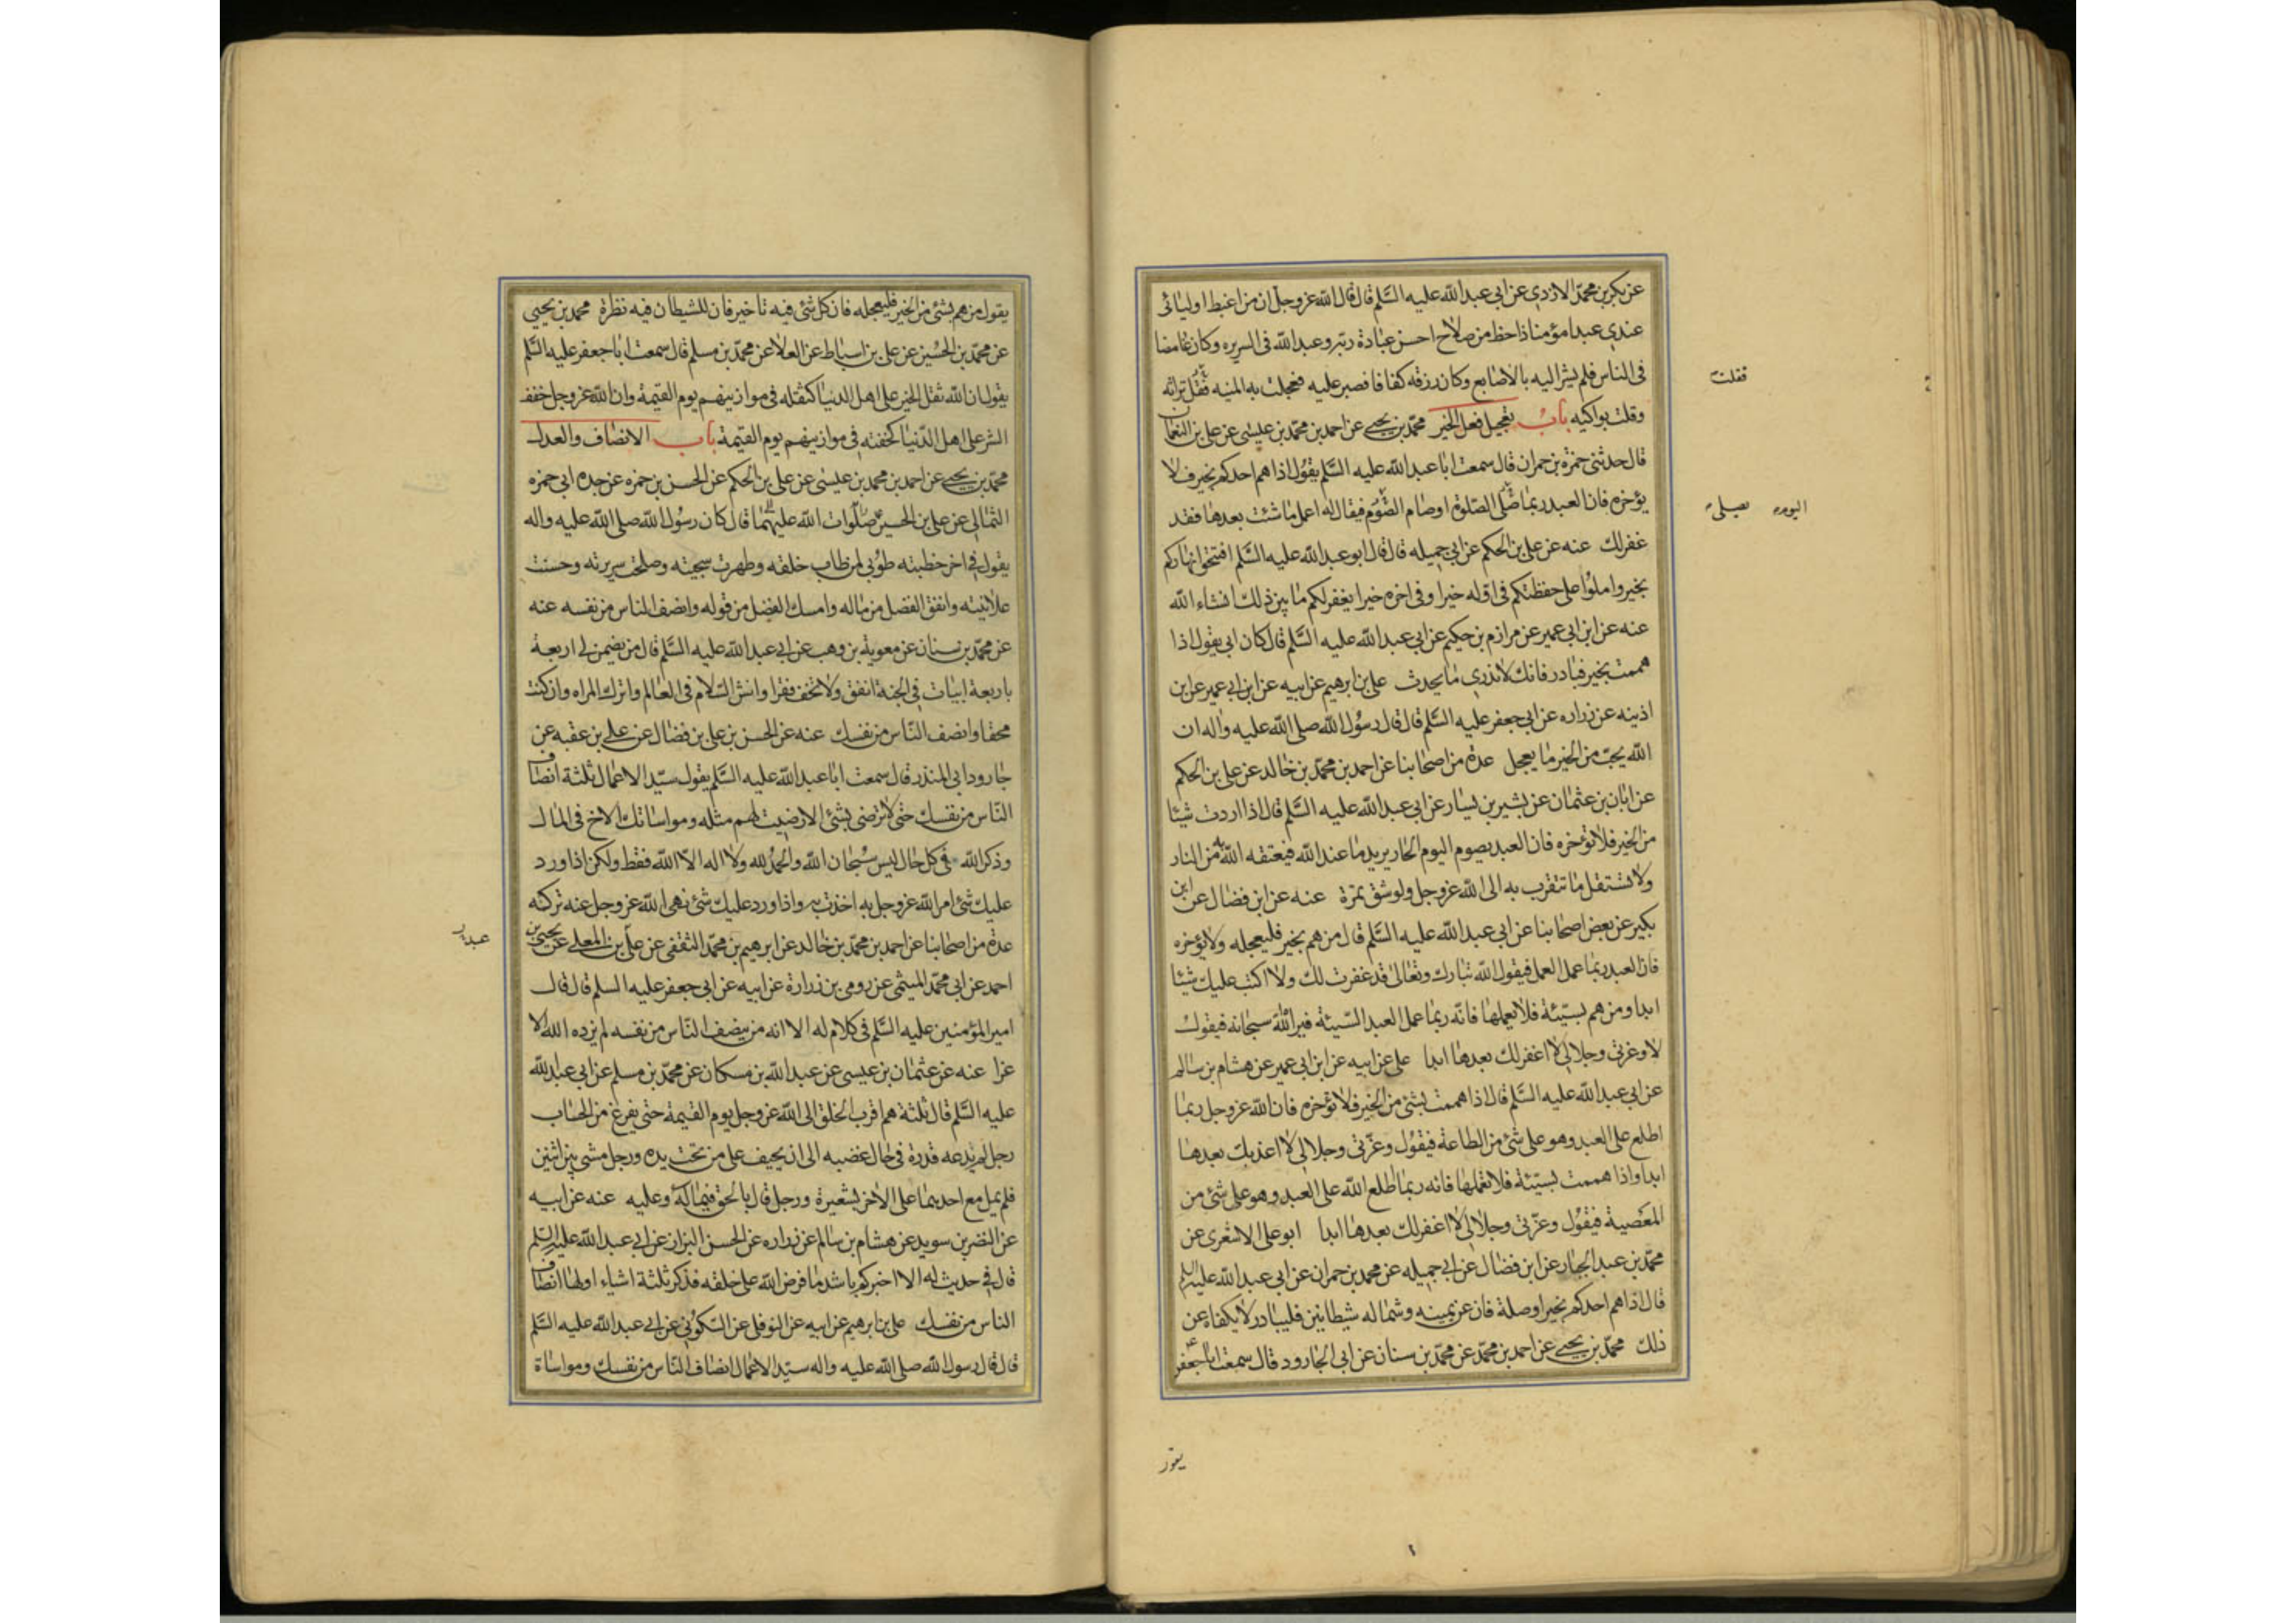 عن بكر بن محمد الازدي عن ابي عبد الله عليه السلم قال قال الله عز وجل ان من اغبط اوليائى
عندي عبدا مؤمنا ذا حظ من صلاح احسن عبادة ربه وعبد الله فى السريره وكان غامضا
فى الناس فلم يشر اليه بالاصابع وكان رزقه كفافا فصبر عليه فعجلت به المنيه فقل تراثه
فقلت
وقلت بواكيه باب تعجيل فعل الخير محمد بن يحيى عن احمد بن محمد بن عيسى عن على بن النعمان
قال حدثنى حمزة بن حمران قال سمعت ابا عبد الله عليه السلم يقول اذا هم احدكم بخير فلا
يؤخره فان العبد ربما صلى الصلوة او صام الصوم فيقال له اعمل ما شئت بعدها فقد
اليوم يصلى
غفر لك عنه عن على بن الحكم عن ابي جميله قال قال ابو عبد الله عليه السلم افتتحوا نهاركم
بخير واملوا على حفظتكم فى اوله خيرا وفى اخره خيرا يغفر لكم ما بين ذلك انشاء الله
عنه عن ابن ابي عمير عن مرازم بن حكيم عن ابي عبد الله عليه السلم قال كان ابي يقول اذا
هممت بخير فبادر فانك لا تدري ما يحدث على بن ابرهيم عن ابيه عن ابن ابي عمير عن ابن
اذينه عن زراره عن ابي جعفر عليه السلم قال قال رسول الله صلى الله عليه واله ان
الله يحب من الخير ما يعجل عدة من اصحابنا عن احمد بن محمد بن خالد عن على بن الحكم
عن ابان بن عثمان عن بشير بن يسار عن ابي عبد الله عليه السلم قال اذا اردت شيئا
من الخير فلا تؤخره فان العبد يصوم اليوم الحار يريد ما عند الله فيعتقه الله من النار
ولا تستقل ما تتقرب به الى الله عز وجل ولو شق تمرة عنه عن ابن فضال عن ابن
بكير عن بعض اصحابنا عن ابي عبد الله عليه السلم قال من هم بخير فليعجله ولا يؤخره
فان العبد ربما عمل العمل فيقول الله تبارك وتعالى قد غفرت لك ولا اكتب عليك شيئا
ابدا ومن هم بسيئة فلا يعملها فانه ربما عمل العبد السيئة فيراه الله سبحانه فيقول
لا وعزتى وجلالى لا اغفر لك بعدها ابدا على عن ابيه عن ابن ابي عمير عن هشام بن سالم
عن ابي عبد الله عليه السلم قال اذا هممت بشئ من الخير فلا تؤخره فان الله عز وجل ربما
اطلع على العبد وهو على شئ من الطاعة فيقول وعزتى وجلالى لا اعذبك بعدها
ابدا واذا هممت بسيئة فلا تعملها فانه ربما اطلع الله على العبد وهو على شئ من
المعصية فيقول وعزتى وجلالى لا اغفر لك بعدها ابدا ابو على الاشعرى عن
محمد بن عبد الجبار عن ابن فضال عن ابي جميله عن محمد بن حمران عن ابي عبد الله عليه السلم
قال اذا هم احدكم بخير او صلة فان عن يمينه وشماله شيطانين فليبادر لا يكفاه عن
ذلك محمد بن يحيى عن احمد بن محمد عن محمد بن سنان عن ابي الجارود قال سمعت ابا جعفر ع
يقول
يقول من هم بشئ من الخير فليعجله فان كل شئ فيه تاخير فان للشيطان فيه نظرة محمد بن يحيى
عن محمد بن الحسين عن على بن اسباط عن العلا عن محمد بن مسلم قال سمعت ابا جعفر عليه السلم
يقول ان الله ثقل الخير على اهل الدنيا كثقله فى موازينهم يوم القيمة وان الله عز وجل خفف
الشر على اهل الدنيا كخفته فى موازينهم يوم القيمة باب الانصاف والعدل
محمد بن يحيى عن احمد بن محمد بن عيسى عن على بن الحكم عن الحسن بن حمزه عن جده ابي حمزه
الثمالى عن على بن الحسين صلوات الله عليهما قال كان رسول الله صلى الله عليه واله
يقول فى اخر خطبته طوبى لمن طاب خلقه وطهرت سجيته وصلحت سريرته وحسنت
علانيته وانفق الفضل من ماله وامسك الفضل من قوله وانصف الناس من نفسه عنه
عن محمد بن سنان عن معوية بن وهب عن ابي عبد الله عليه السلم قال من يضمن لى اربعة
باربعة ابيات فى الجنة انفق ولا تخف فقرا وانش السلام فى العالم واترك المراء وان كنت
محقا وانصف الناس من نفسك عنه عن الحسن بن على بن فضال عن على بن عقبه عن
جارود ابي المنذر قال سمعت ابا عبد الله عليه السلم يقول سيد الاعمال ثلثة انصاف
الناس من نفسك حتى لا ترضى بشئ الا رضيت لهم مثله ومواساتك الاخ فى المال
وذكر الله فى كل حال ليس سبحان الله والحمد لله ولا اله الا الله فقط ولكن اذا ورد
عليك شئ امر الله عز وجل به اخذت به واذا ورد عليك شئ نهى الله عز وجل عنه تركته
عدة من اصحابنا عن احمد بن محمد بن خالد عن ابرهيم بن محمد الثقفى عن على بن المعلى عن يحيى بن
احمد عن ابي محمد الميثمى عن رومى بن زرارة عن ابيه عن ابي جعفر عليه السلم قال قال
امير المؤمنين عليه السلم فى كلام له الا انه من ينصف الناس من نفسه لم يزده الله الا
عزا عنه عن عثمان بن عيسى عن عبد الله بن مسكان عن محمد بن مسلم عن ابي عبد الله
عليه السلم قال ثلثة هم اقرب الخلق الى الله عز وجل يوم القيمة حتى يفرغ من الحساب
رجل لم يدعه قدرة فى حال غضبه الى ان يحيف على من تحت يده ورجل مشى بين اثنين
فلم يمل مع احديهما على الاخر بشعيرة ورجل قال بالحق فيما له وعليه عنه عن ابيه
عن النضر بن سويد عن هشام بن سالم عن زراره عن الحسن البزاز عن ابي عبد الله عليه السلم
قال فى حديث له الا اخبركم باشد ما فرض الله على خلقه فذكر ثلثة اشياء اولها انصاف
الناس من نفسك على بن ابرهيم عن ابيه عن النوفلى عن السكونى عن ابي عبد الله عليه السلم
قال قال رسول الله صلى الله عليه واله سيد الاعمال انصاف الناس من نفسك ومواساة